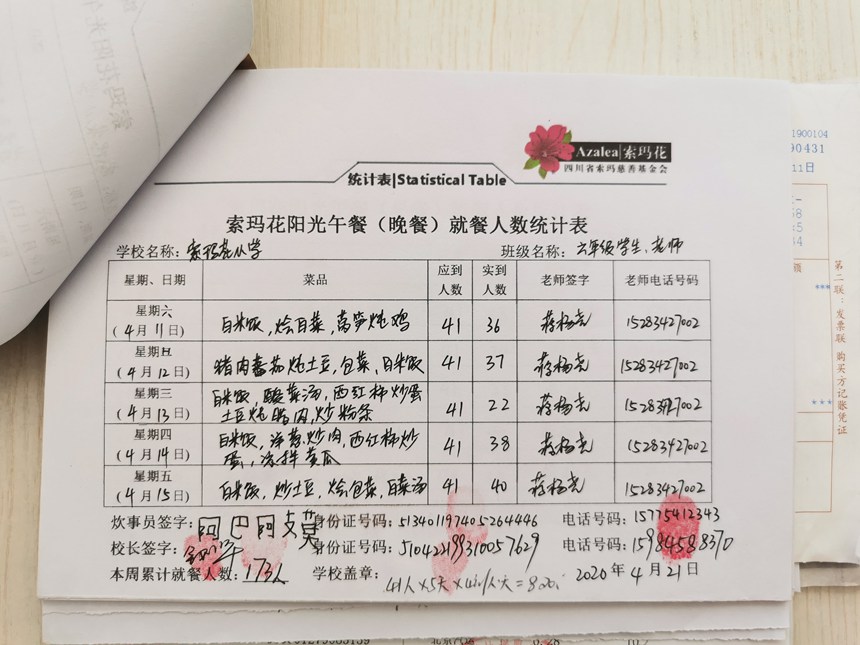 Azalea|索玛花
四川省索玛慈善基金会
统计表|Statistical Table
索玛花阳光午餐（晚餐）就餐人数统计表
学校名称：索玛花小学 班级名称：六年级学生、老师
星期、日期 菜品 应到人数 实到人数 老师签字 老师电话号码
星期六（4月11日） 白米饭，烩白菜，莴笋炖鸡 41 36 15283427002
星期日（4月12日） 猪肉番茄炖土豆，包菜，白米饭 41 37 15283427002
星期三（4月13日） 白米饭，酸菜汤，西红柿炒蛋 土豆炖猪肉，炒粉条 41 22 15283427002
星期四（4月14日） 白米饭，洋葱炒肉，西红柿炒蛋，凉拌黄瓜 41 38 15283427002
星期五（4月15日） 白米饭，炒土豆，烩包菜，白菜汤 41 40 15283427002
炊事员签字： 身份证号码：513401197405264446 电话号码：15775412343
校长签字： 身份证号码：510422199310057629 电话号码：15984588370
本周累计就餐人数：173人 学校盖章： 2020年4月21日
1900104
90431
11日
第二联：发票联 购买方记账凭证